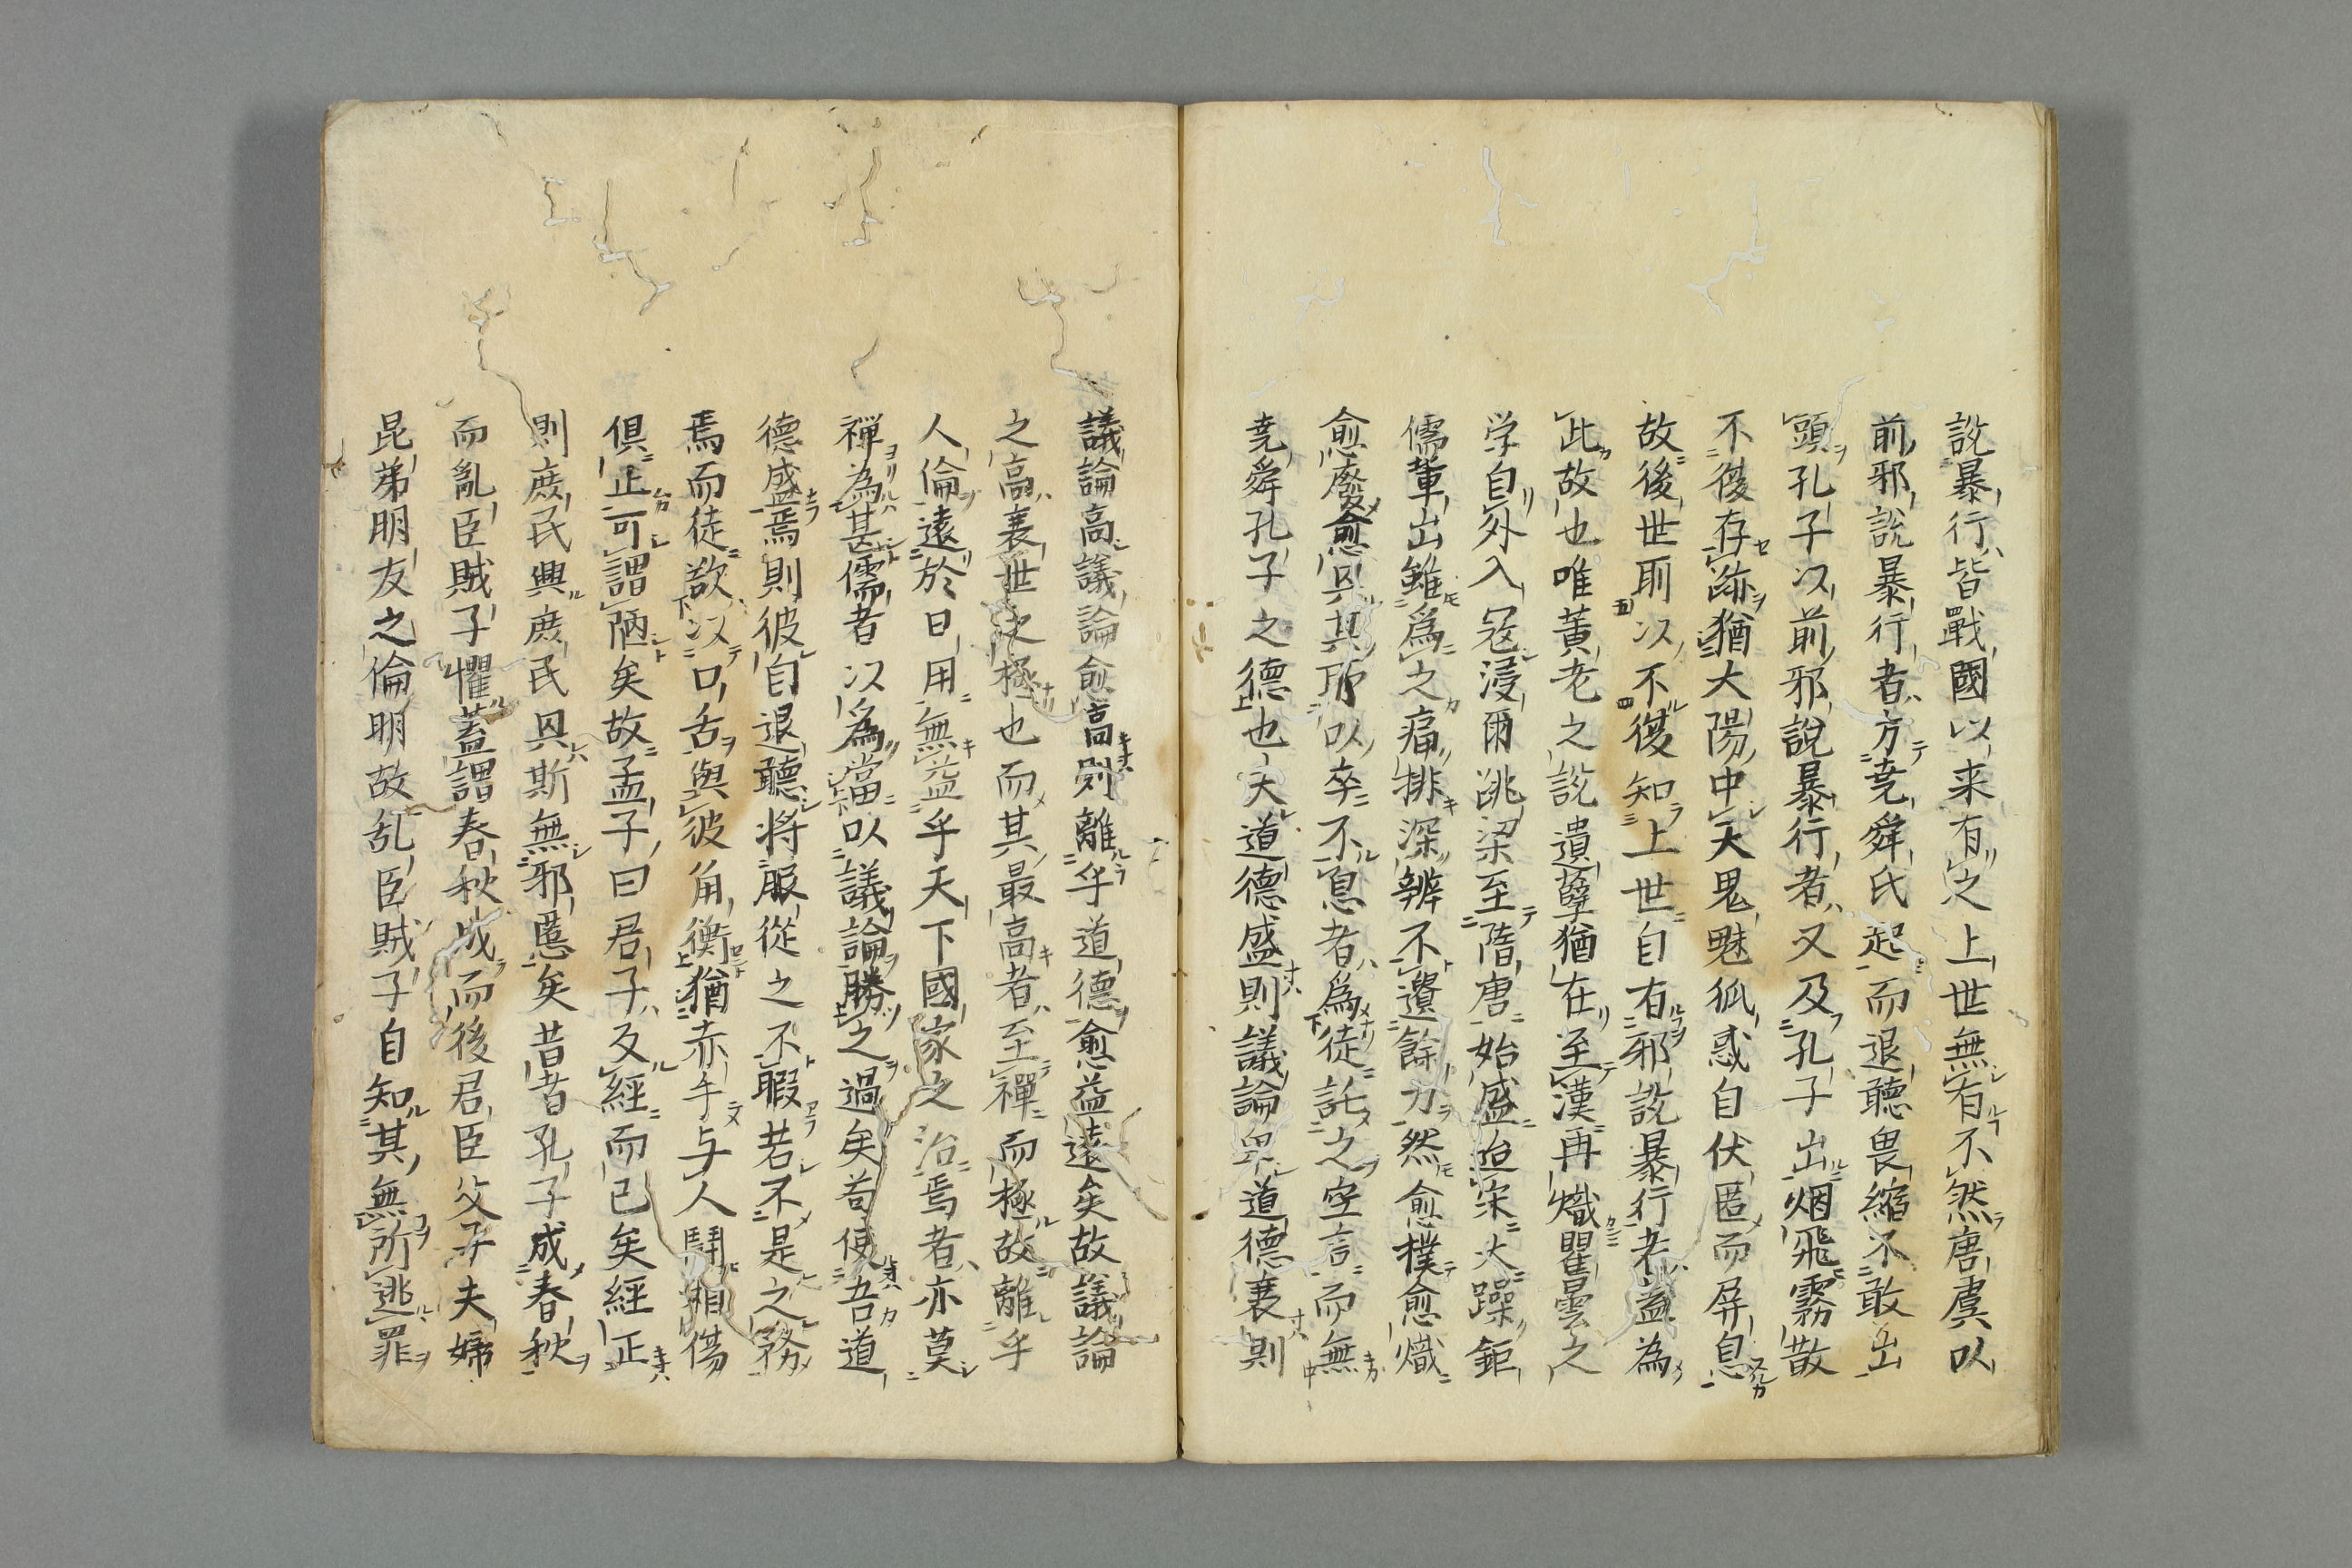 説暴行皆戰國以来有之上世無有不然唐虞以
前邪説暴行者方堯舜氏起而退聽畏縮不敢出
頭孔子以前邪説暴行者又及孔子出烟飛霧散
不復存跡猶大陽中天鬼魅狐惑自伏匿而屏息
故後世所以不復知上世自有邪説暴行者益為
此故也唯黄老之説遺孽猶在至漢再熾瞿曇之
学自外入冦浸爾洮梁至隋唐始盛迨宋大躁鉅
儒輩出雖爲之痛排深辨不遺餘力然愈撲愈熾
愈廢愈興其所以卒不息者爲徒託之空言而無
堯舜孔子之德也夫道德盛則議論卑道德衰則
議論高議論愈高則離乎道德愈益遠矣故議論
之高衰世之極也而其最高者至禪而極故離乎
人倫遠於日用無益乎天下國家之治焉者亦莫
禪為甚儒者以爲當以議論勝之過矣苟使吾道
德盛焉則彼自退聽将服從之不暇若不是之務
焉而徒欲以口舌與彼角衡猶赤手与人鬪相傷
俱止可謂陋矣故孟子曰君子反經而已矣經正
則庶民興庶民興斯無邪慝矣昔者孔子成春秋
而亂臣賊子懼蓋謂春秋成而後君臣父子夫婦
昆弟朋友之倫明故乱臣賊子自知其無所逃罪